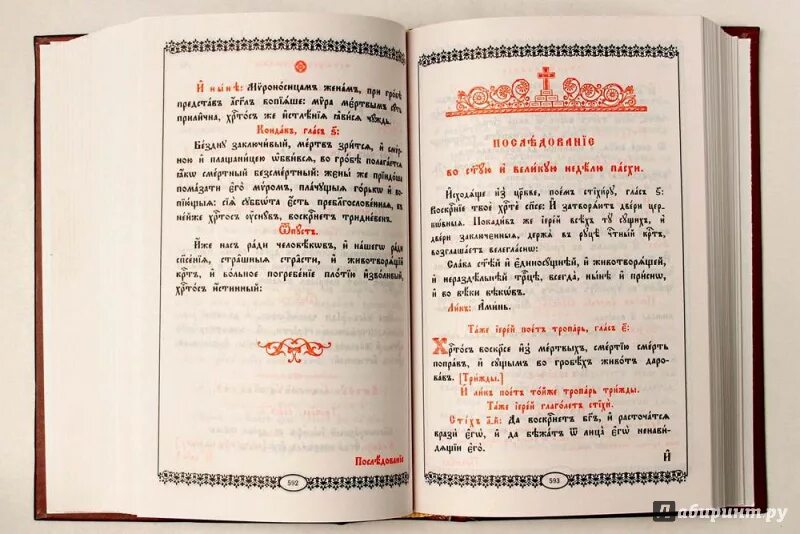 И҆ ны́нѣ: Мѷроно́сицамъ жена́мъ, при гро́бѣ
предста́въ а҆́гг҃лъ вопїѧ́ше: мѵ̑ра мє́ртвымъ сꙋ́ть
прили̑чна, хрⷭ҇то́съ же и҆стлѣ́нїѧ ꙗ҆ви́сѧ чꙋ́ждь.
Конда́къ, гла́съ ѕ҃:
Бе́зднꙋ заключи́вый, ме́ртвъ зри́тсѧ, и҆ смѵ́р-
ною и҆ плащани́цею ѡ҆бви́всѧ, во гро́бѣ полага́етсѧ
ꙗ҆́кѡ сме́ртный безсме́ртный: жєны́ же прїидо́ша
пома́зати є҆го̀ мѵ́ромъ, пла́чꙋщыѧ го́рькѡ и҆ во-
пїю́щыѧ: сїѧ̀ сꙋббѡ́та є҆́сть пребл҃гослове́ннаѧ, въ
не́йже хрⷭ҇то́съ ᲂу҆снꙋ́въ, воскре́снетъ тридне́венъ.
Ѿпꙋ́стъ.
И҆́же на́съ ра́ди человѣ́кѡвъ, и҆ на́шегѡ ра́ди
сп҃се́нїѧ, стра̑шныѧ стра̑сти, и҆ животворѧ́щїй
крⷭ҇тъ, и҆ во́льное погребе́нїе пло́тїю и҆зво́ливый,
хрⷭ҇то́съ и҆́стинный:
Послѣ́дованїе
592
Послѣ́дованїе
во ст҃ꙋ́ю и҆ вели́кꙋю недѣ́лю па́схи.
И҆сходѧ́ще и҆з̾ цр҃кве, пое́мъ стїхи́рꙋ, гла́съ ѕ҃:
Воскрⷭ҇нїе твоѐ хрⷭ҇тѐ сп҃се: И҆ затворѧ́тъ двє́ри цер-
кѡ́вныѧ. Покади́въ же і҆ере́й всѣ́хъ тꙋ̀ сꙋ́щихъ, и҆
двє́ри заключє́нныѧ, держа̀ въ рꙋцѣ̀ чⷭ҇тны́й крⷭ҇тъ,
возглаша́етъ велегла́снѡ:
Сла́ва ст҃ѣ́й и҆ є҆диносꙋ́щнѣй, и҆ животворѧ́щей,
и҆ нераздѣ́льнѣй трⷪ҇цѣ, всегда̀, ны́нѣ и҆ при́снѡ,
и҆ во вѣ́ки вѣкѡ́въ.
Ли́къ: А҆ми́нь.
Та́же і҆ере́й пое́тъ тропа́рь, гла́съ є҃:
Хрⷭ҇то́съ воскре́се и҆з̾ ме́ртвыхъ, сме́ртїю сме́рть
попра́въ, и҆ сꙋ́щымъ во гробѣ́хъ живо́тъ даро-
ва́въ. [Три́жды.]
И҆ ли́къ пое́тъ то́йже тропа́рь три́жды.
Та́же і҆ере́й глаго́летъ стїхѝ:
Сті́хъ а҃-й: Да воскре́снетъ бг҃ъ, и҆ расточа́тсѧ
вразѝ є҆гѡ̀, и҆ да бѣжа́тъ ѿ лица̀ є҆гѡ̀ ненави́-
дѧщїи є҆го̀.
И҆
593
Лабиринт.ру